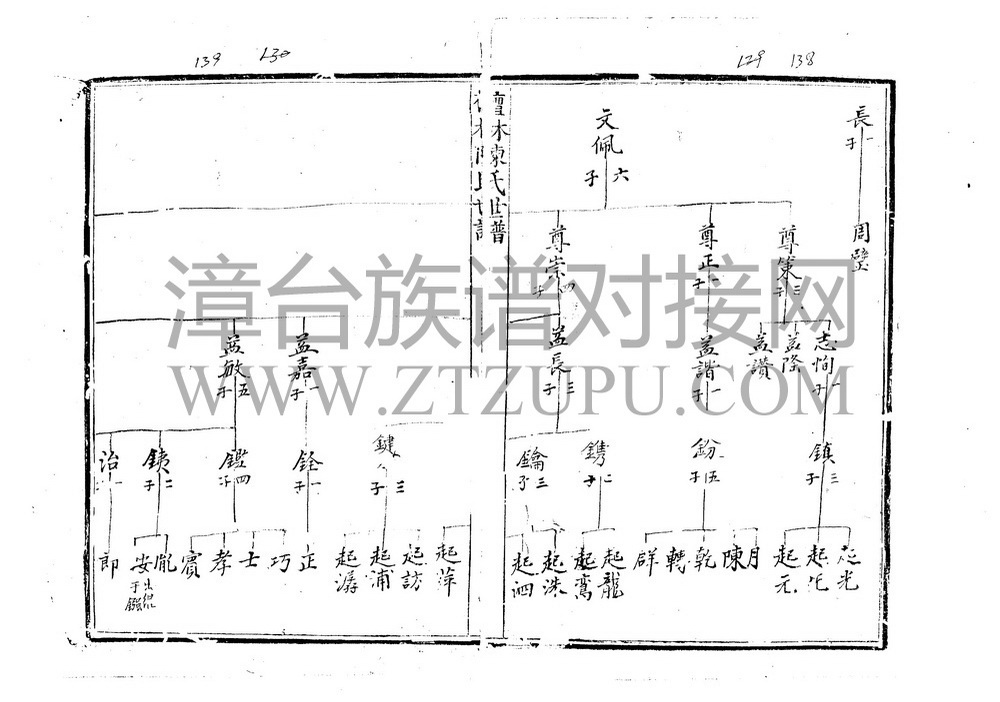 139
130
129
138
長
一子
周璧
文佩
六子
尊策
三子
尊正
一子
尊崇
四子
志恂
一子
益隆
益讚
益諧
一子
益長
三子
鎮
三子
鈖
五子
鐫
二子
鑰
三子
起光
起元
月
陳
乾
轉
群
起龍
起鸞
起洙
起泗
檀林陳氏世譜
益嘉
一子
益敏
五子
鍵
三子
銓
一子
鑑
四子
銕
二子
治
一
起萍
起訪
起浦
起潺
正
巧
士
孝
賓
胤
安
出繼于鑑
郎
漳台族谱对接网
WWW.ZTZUPU.COM